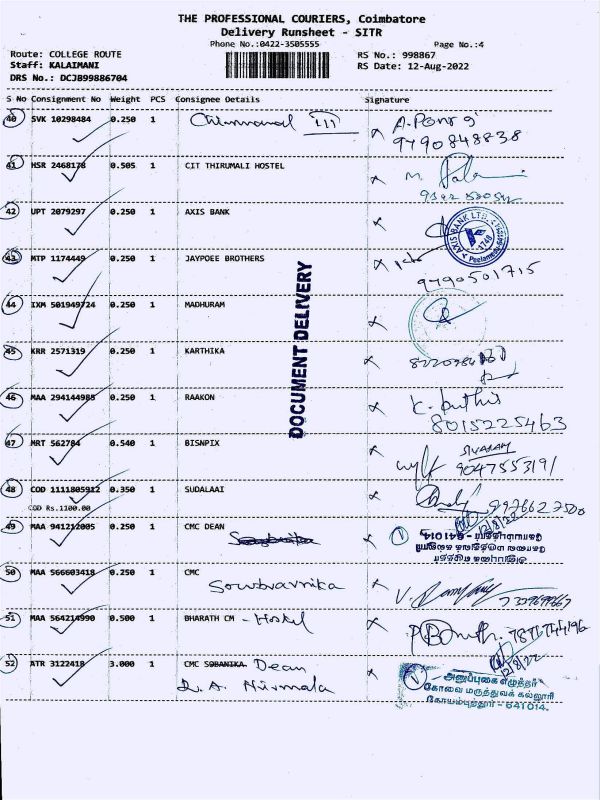 THE PROFESSIONAL COURIERS, Coimbatore
Delivery Runsheet - SITR
Phone No.:0422-3505555 Page No.:4
Route: COLLEGE ROUTE RS No.: 998867
Staff: KALAIMANI RS Date: 12-Aug-2022
DRS No.: DCJB99886704
S No Consignment No Weight PCS Consignee Details Signature
40 SVK 10298484 0.250 1
9790848838
41 HSR 2468178 0.505 1 CIT THIRUMALI HOSTEL
42 UPT 2079297 0.250 1 AXIS BANK
AXIS BANK LTD.
1748
43 MTP 1174449 0.250 1 JAYPOEE BROTHERS
9790501715
44 IXM 501949724 0.250 1 MADHURAM
DOCUMENT DELIVERY
45 KRR 2571319 0.250 1 KARTHIKA
46 MAA 294144985 0.250 1 RAAKON
8015225463
47 MRT 562784 0.540 1 BISNPIX SIVARAM
9047553191
48 COD 1111805912 0.350 1 SUDALAAI
COD Rs.1100.00
12/8/22
49 MAA 941212005 0.250 1 CMC DEAN
அனுப்புகை எழுத்தர்
கோவை மருத்துவக் கல்லூரி
கோயம்புத்தூர் - 641014.
50 MAA 566603418 0.250 1 CMC
Sowbvarnika
51 MAA 564214990 0.500 1 BHARATH CM - Hostel
52 ATR 3122418 3.000 1 CMC SOBANIKA. Dean
12/8/22
Nirmala
அனுப்புகை எழுத்தர்
கோவை மருத்துவக் கல்லூரி
கோயம்புத்தூர் - 641014.